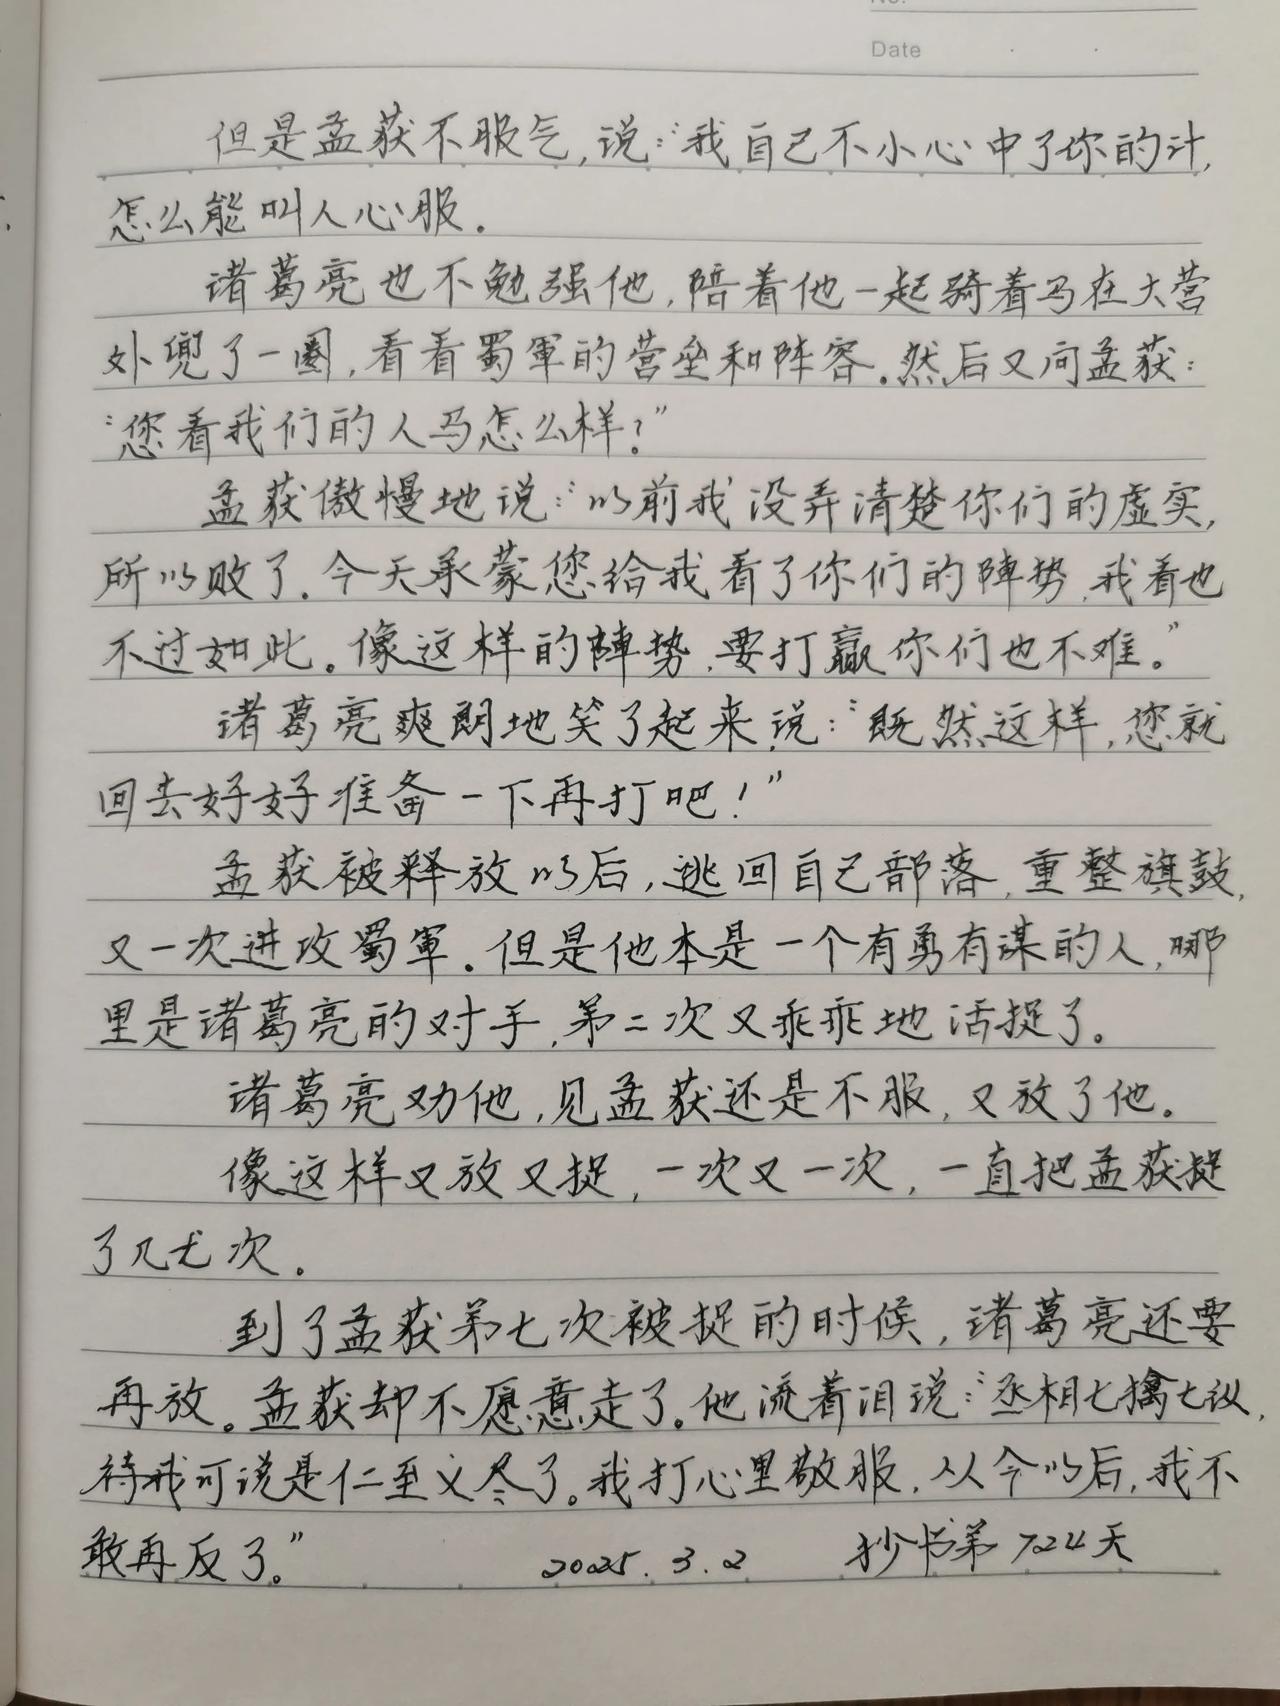 No.
Date
但是孟获不服气,说:“我自己不小心中了你的计,
怎么能叫人心服.
诸葛亮也不勉强他,陪着他一起骑着马在大营
外兜了一圈,看看蜀軍的营垒和阵容.然后又问孟获:
“您看我们的人马怎么样?”
孟获傲慢地说:“以前我没弄清楚你们的虚实,
所以败了.今天承蒙您给我看了你们的陣势,我看也
不过如此。像这样的陣势,要打赢你们也不难。”
诸葛亮爽朗地笑了起来,说:“既然这样,您就
回去好好准备一下再打吧!”
孟获被释放以后,逃回自己部落,重整旗鼓,
又一次进攻蜀軍.但是他本是一个有勇有谋的人,哪
里是诸葛亮的对手,第二次又乖乖地活捉了。
诸葛亮劝他,见孟获还是不服,又放了他。
像这样又放又捉,一次又一次,一直把孟获捉
了几七次.
到了孟获第七次被捉的时候,诸葛亮还要
再放。孟获却不愿意走了。他流着泪说:“丞相七擒七纵,
待我可说是仁至义尽了。我打心里敬服,从今以后,我不
敢再反了。” 2025.3.2 抄书第724天